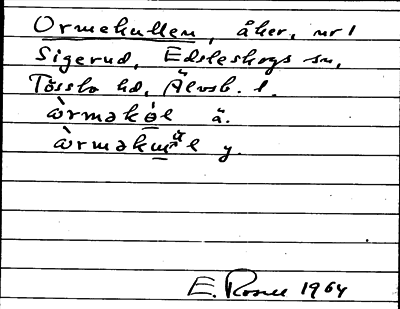 Ormekullen, åker, nr 1
Sigerud, Edsleskogs sn,
Tössbo hd, Älvsb. l.
ä.
y.
E. Rosell 1964